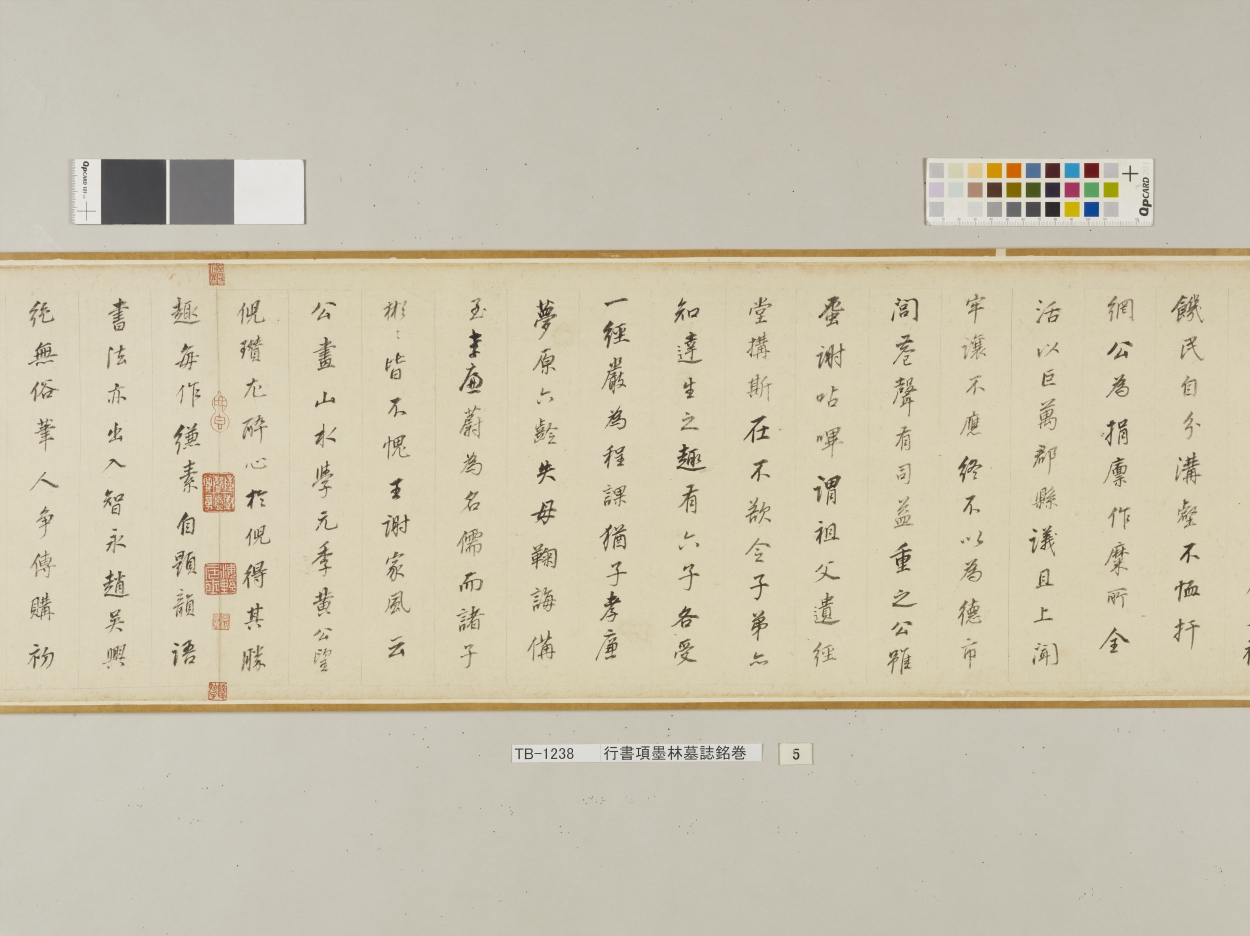 饑民自分溝壑不恤扞
網公為捐廩作糜所全
活以巨萬郡縣議且上聞
牢讓不應終不以為德市
閭巷聲有司益重之公雖
蚤謝呫嗶謂祖父遺經
堂搆斯在不欲令子弟亦
知達生之趣有六子各受
一經嚴為程課猶子孝廉
夢原六齡失母鞠誨備
至孝廉蔚為名儒而諸子
彬〻皆不愧王謝家風云
公畫山水學元季黃公望
倪瓚尤醉心於倪得其勝
趣每作縑素自題韻語
書法亦出入智永趙吳興
絕無俗筆人爭傳購初
QpCARD
QpCARD
TB-1238 行書項墨林墓誌銘巻 5